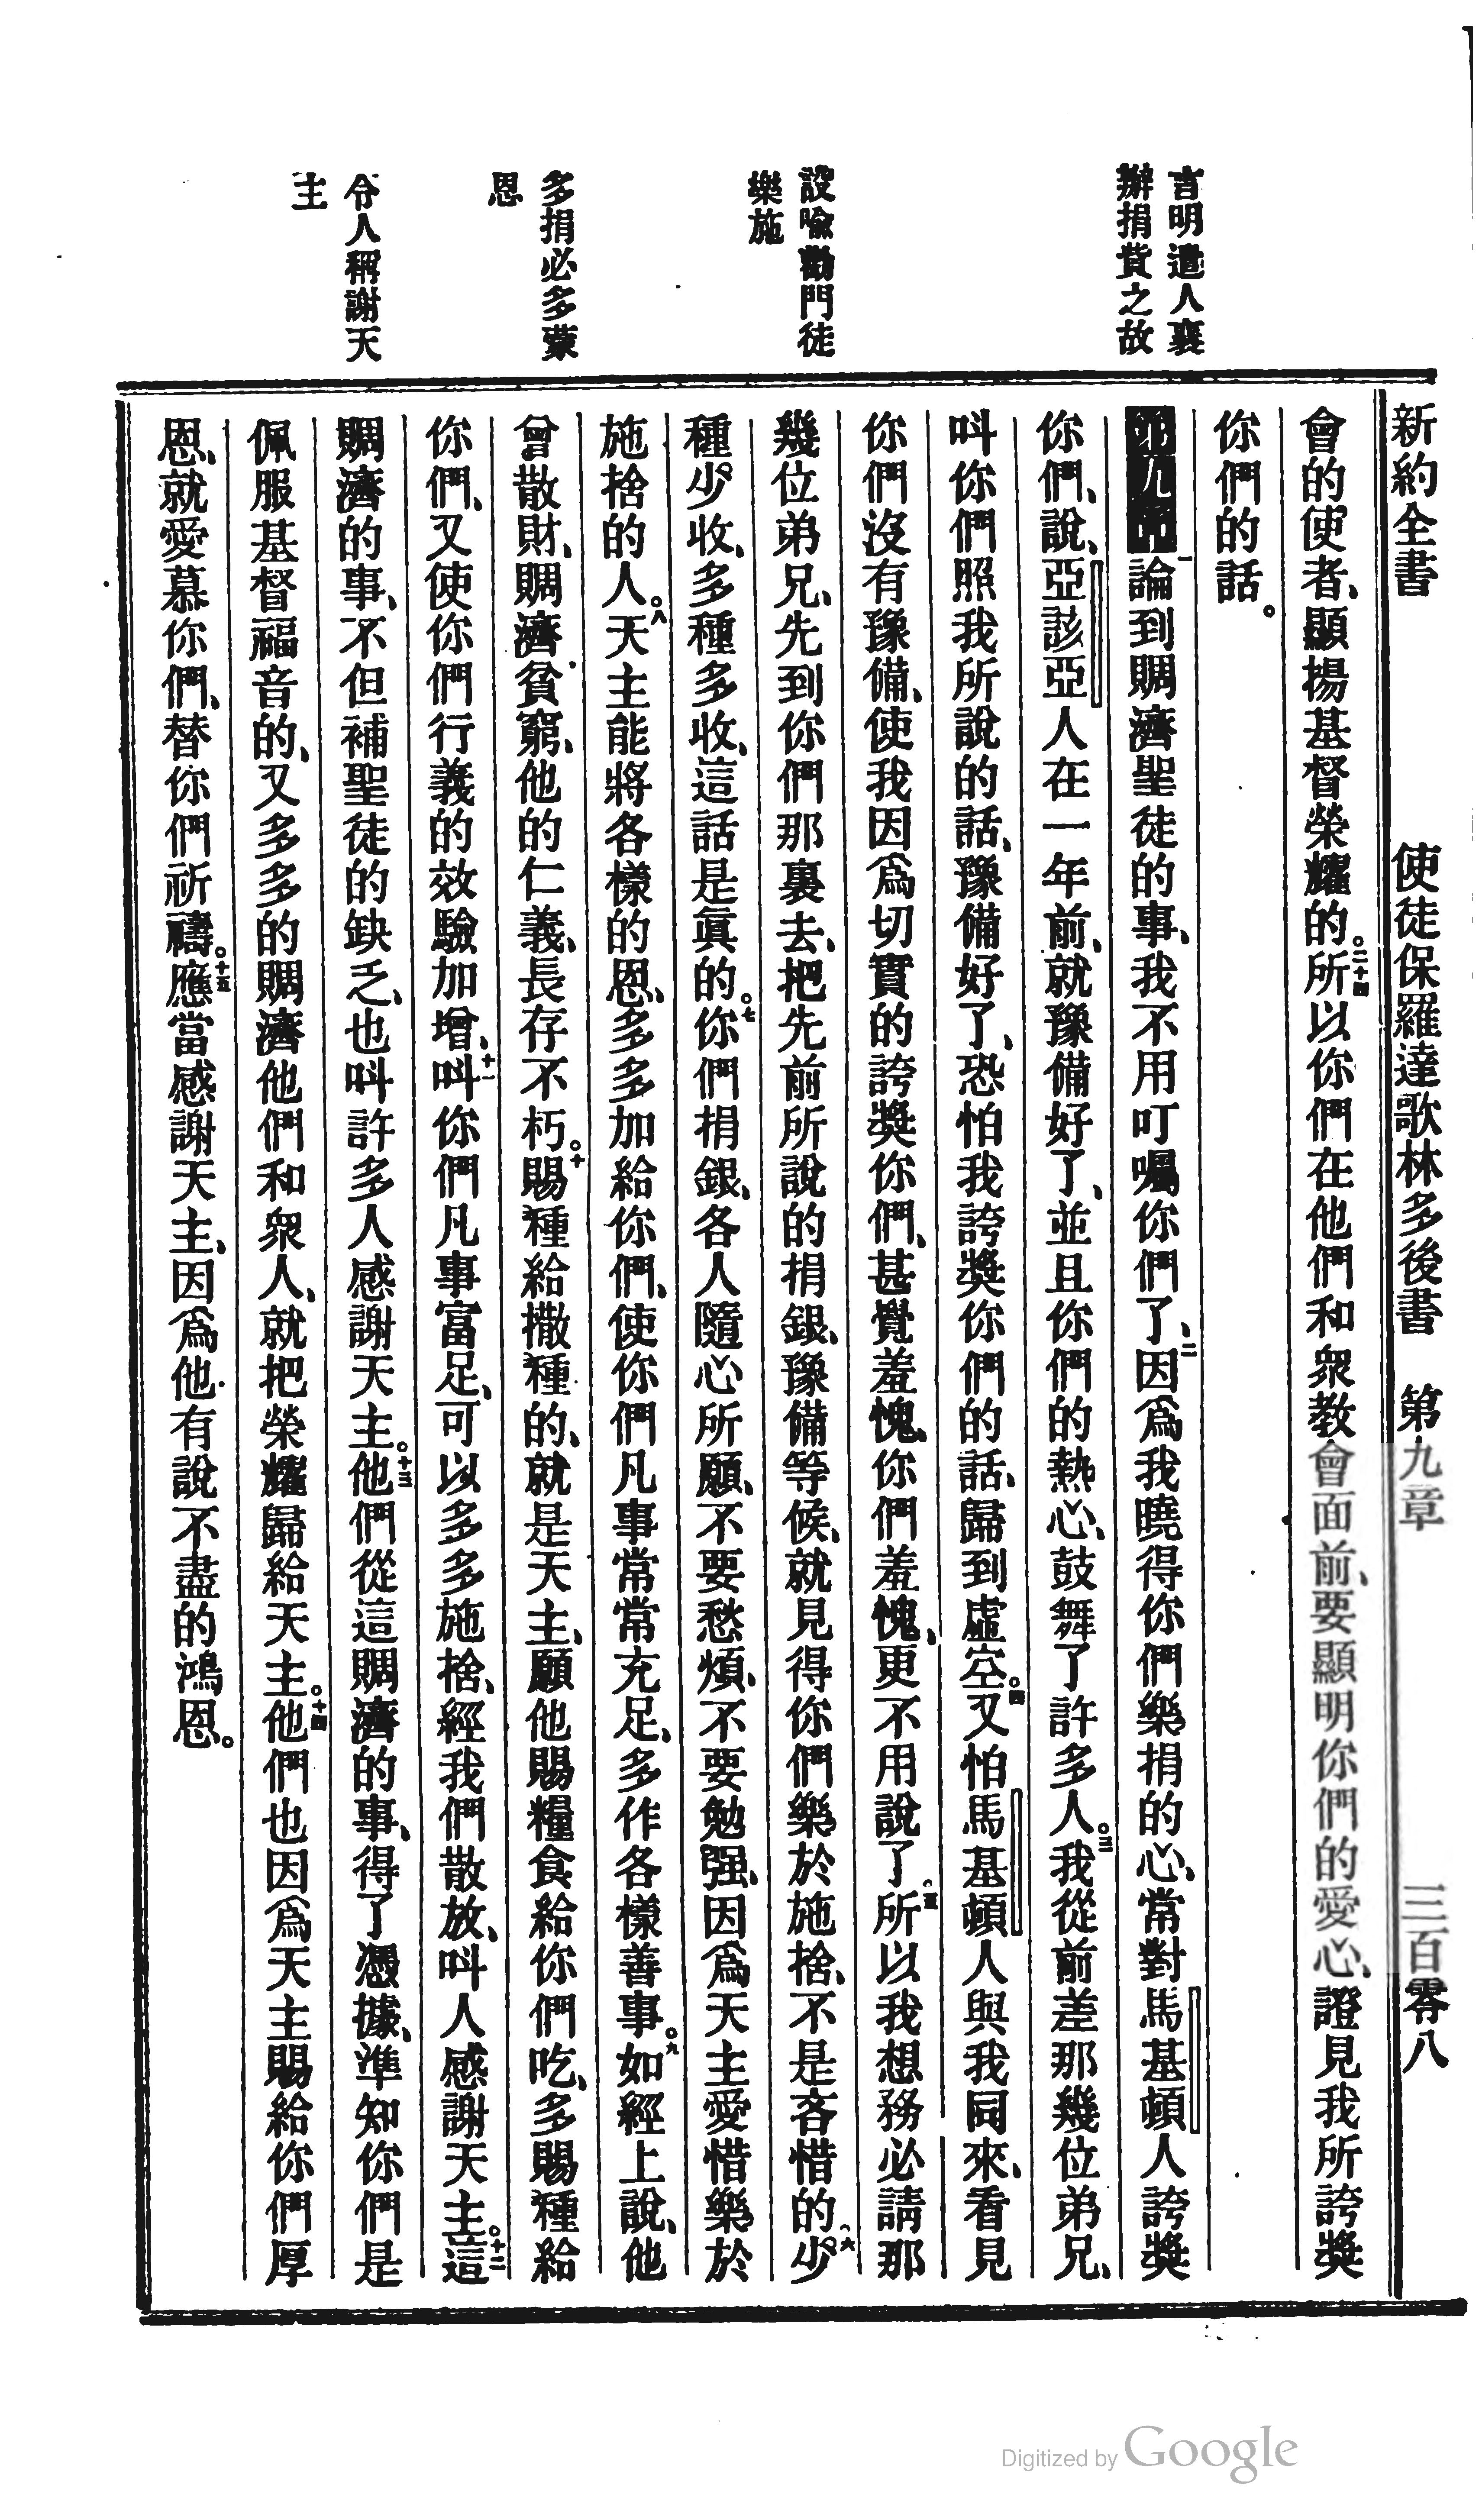 新約全書　使徒保羅達歌林多後書　第九章　三百零八
言明遣人襄
辦捐貲之故
設喻勸門徒
樂施
多捐必多蒙
恩
令人稱謝天
主
會的使者、顯揚基督榮耀的。二十四所以你們在他們和衆教會面前、要顯明你們的愛心、證見我所誇獎
你們的話。
第九章一論到賙濟聖徒的事、我不用叮囑你們了、二因爲我曉得你們樂捐的心、常對馬基頓人誇獎
你們、說、亞該亞人在一年前、就豫備好了、並且你們的熱心、鼓舞了許多人。三我從前差那幾位弟兄、
呌你們照我所說的話、豫備好了、恐怕我誇獎你們的話、歸到虛空。四又怕馬基頓人與我同來、看見
你們沒有豫備、使我因爲切實的誇獎你們、甚覺羞愧、你們羞愧、更不用說了。五所以我想務必請那
幾位弟兄、先到你們那裏去、把先前所說的捐銀、豫備等候、就見得你們樂於施捨、不是吝惜的。六少
種少收、多種多收、這話是眞的。七你們捐銀、各人隨心所願、不要愁煩、不要勉强、因爲天主愛惜樂於
施捨的人。八天主能將各樣的恩、多多加給你們、使你們凡事常常充足、多作各樣善事。九如經上說、他
曾散財、賙濟貧窮、他的仁義、長存不朽。十賜種給撒種的、就是天主、願他賜糧食給你們吃、多賜種給
你們、又使你們行義的效驗加增、十一呌你們凡事富足、可以多多施捨、經我們散放、呌人感謝天主。十二這
賙濟的事、不但補聖徒的缺乏、也呌許多人感謝天主。十三他們從這賙濟的事、得了憑據、準知你們是
佩服基督福音的、又多多的賙濟他們和衆人、就把榮耀歸給天主。十四他們也因爲天主賜給你們厚
恩、就愛慕你們、替你們祈禱。十五應當感謝天主、因爲他有說不盡的鴻恩。
Digitized by Google